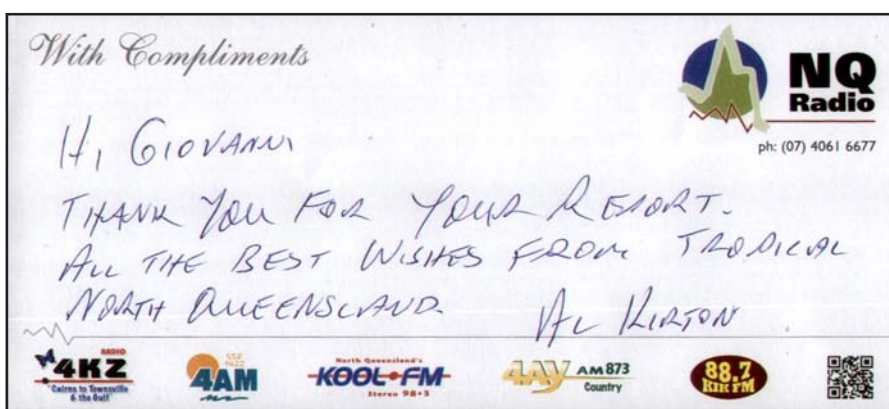 With Compliments
NQ
Radio
ph: (07) 4061 6677
HI GIOVANNI
THANK YOU FOR YOUR REPORT.
ALL THE BEST WISHES FROM TROPICAL
NORTH QUEENSLAND.
AL KIRTON
RADIO
4KZ
Cairns to Townsville
& the Gulf
4AM
North Queensland's
KOOL•FM
Stereo 98•3
4AY AM 873
Country
88.7
KIK FM